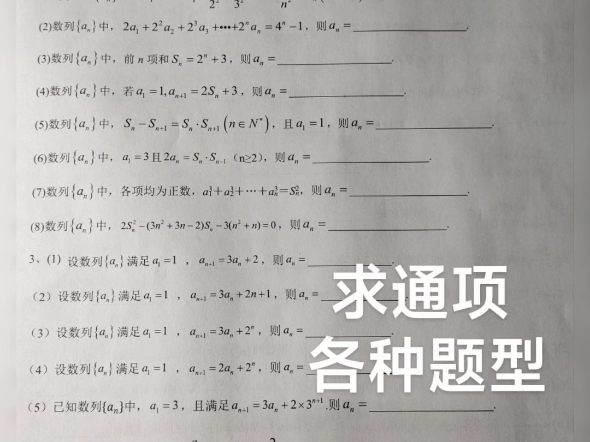 (2)数列{aₙ}中，2a₁+2²a₂+2³a₃+⋯+2ⁿaₙ=4ⁿ−1，则aₙ=
(3)数列{aₙ}中，前n项和Sₙ=2ⁿ+3，则aₙ=
(4)数列{aₙ}中，若a₁=1,aₙ₊₁=2Sₙ+3，则aₙ=
(5)数列{aₙ}中，Sₙ−Sₙ₊₁=Sₙ·Sₙ₊₁(n∈N*)，且a₁=1，则aₙ=
(6)数列{aₙ}中，a₁=3且2aₙ=Sₙ·Sₙ₋₁（n≥2)，则aₙ=
(7)数列{aₙ}中，各项均为正数，a₁³+a₂³+⋯+aₙ³=Sₙ²，则aₙ=
(8)数列{aₙ}中，2Sₙ²−(3n²+3n−2)Sₙ−3(n²+n)=0，则aₙ=
3、(1) 设数列{aₙ}满足a₁=1 ，aₙ₊₁=3aₙ+2，则aₙ=
（2）设数列{aₙ}满足a₁=1 ，aₙ₊₁=3aₙ+2n+1，则aₙ=
（3）设数列{aₙ}满足a₁=1 ，aₙ₊₁=3aₙ+2ⁿ，则aₙ=
（4）设数列{aₙ}满足a₁=1 ，aₙ₊₁=2aₙ+2ⁿ，则aₙ=
（5）已知数列{aₙ}中，a₁=3，且满足aₙ₊₁=3aₙ+2×3ⁿ⁺¹.则aₙ=
求通项
各种题型